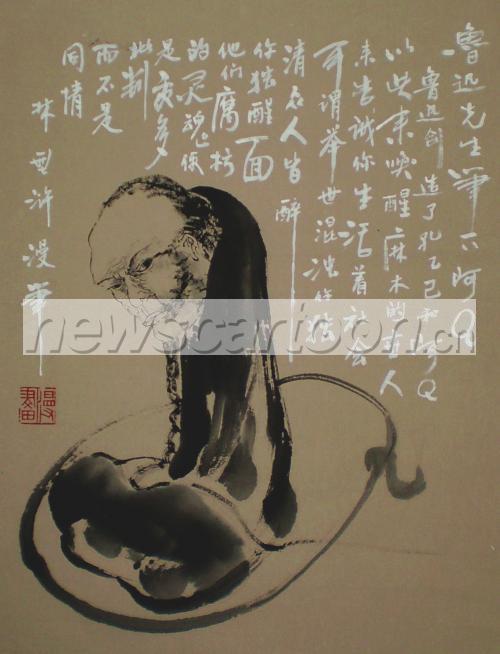 鲁迅先生笔下阿Q
鲁迅创造了孔乙己和阿Q
以此来唤醒麻木的人
来告诫你生活着社会
可谓举世混浊你独
清众人皆醉
你独醒面
他们腐朽
的灵魂你
是更多
批判
而不是
同情
林浒漫笔
漫画
newscartoon.cn